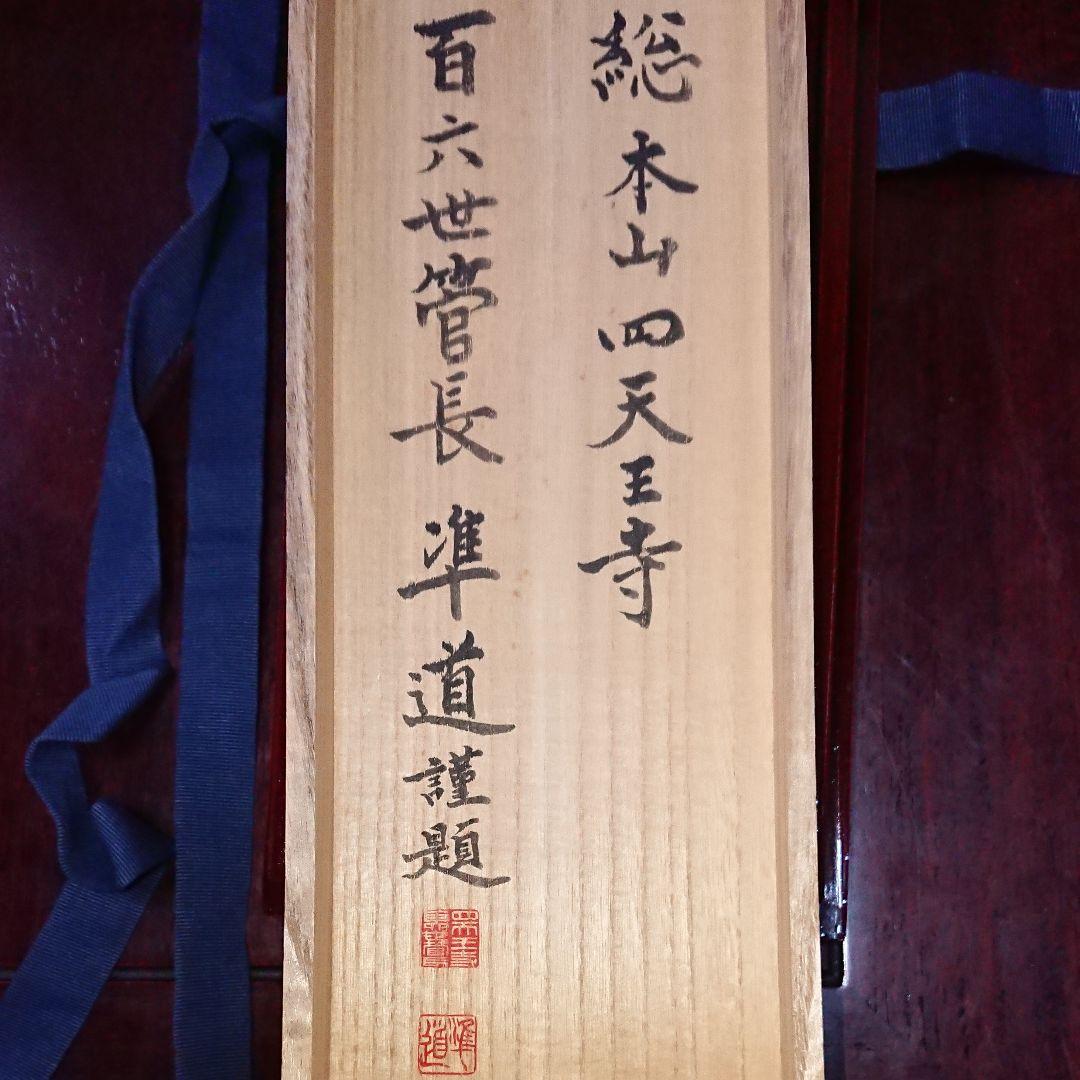 総本山四天王寺
百六世管長 凖道謹題
凖道